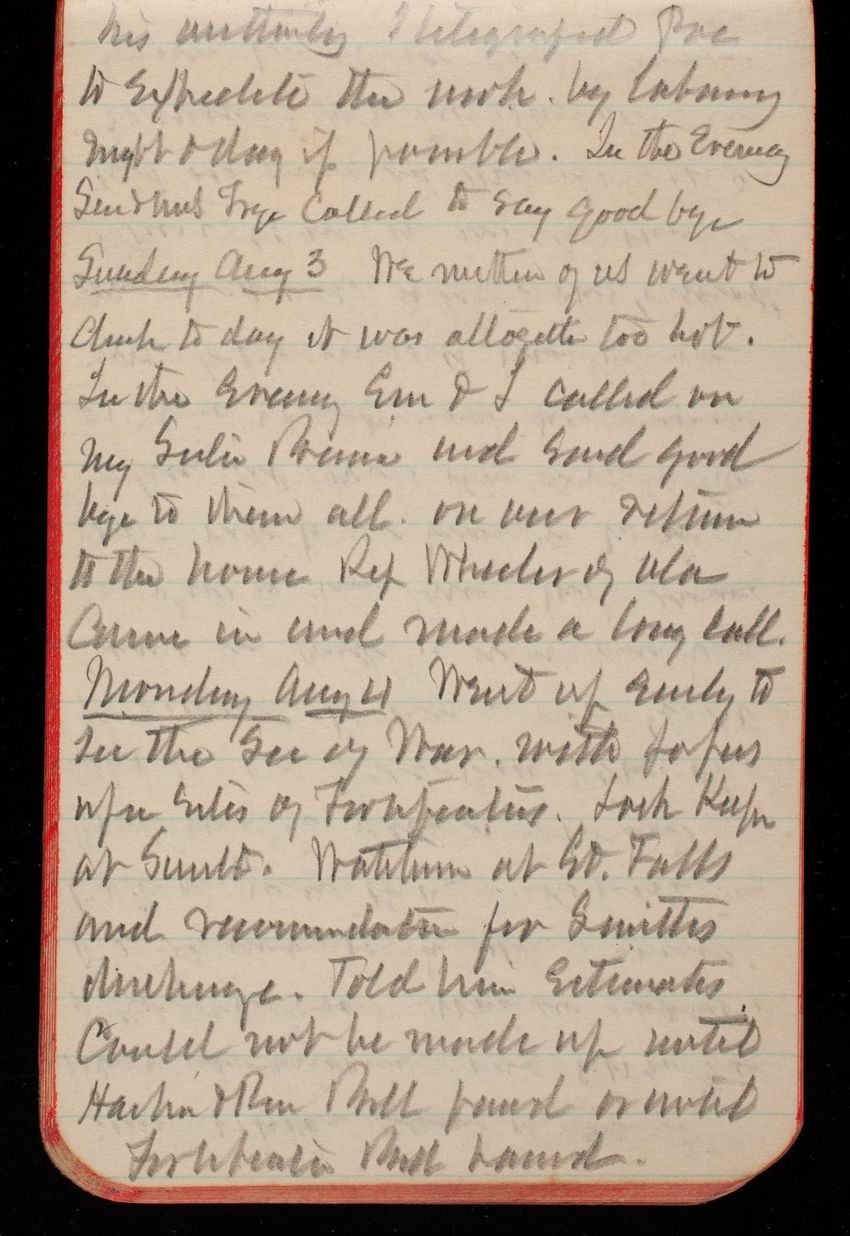 his authority I telegraphed Poe
to Expedite the work. by laboring
night & day if possible. In the Evening
Gen & Mrs called to say good bye
Sunday Aug 3 We neither of us went to
Chuch to day it was altogether too hot.
In the Evening Em & I called on
my and said good
bye to them all. on our return
to the house Rep Wheeler of Ala
Came in and made a long call.
Monday Aug 4 Went up early to
see the Sec of War. with papers
upon Sites of Fortifications. Lock Keeper
at Sault. Watchman at Gt. Falls
and recommendation for Smiths
discharge. Told him Estimates
Could not be made up until
Harbor & River Bill passed or until
Fortification Bill passed.